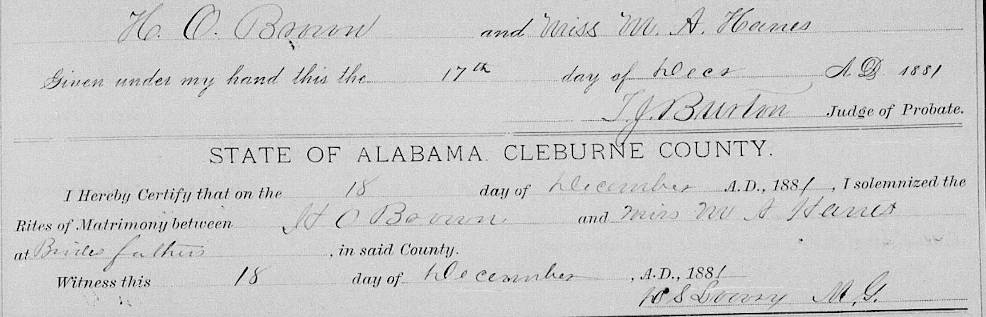 H. O. Brown and Miss M. A. Hanes
Given under my hand this the 17th day of Decr A.D. 1881
T. J. Burton Judge of Probate.
STATE OF ALABAMA. CLEBURNE COUNTY.
I Hereby Certify that on the 18 day of December A.D., 1881, I solemnized the
Rites of Matrimony between H O Brown and Miss M A Hanes
at Brides fathers, in said County.
Witness this 18 day of December, A.D., 1881
S Lowry M. G.